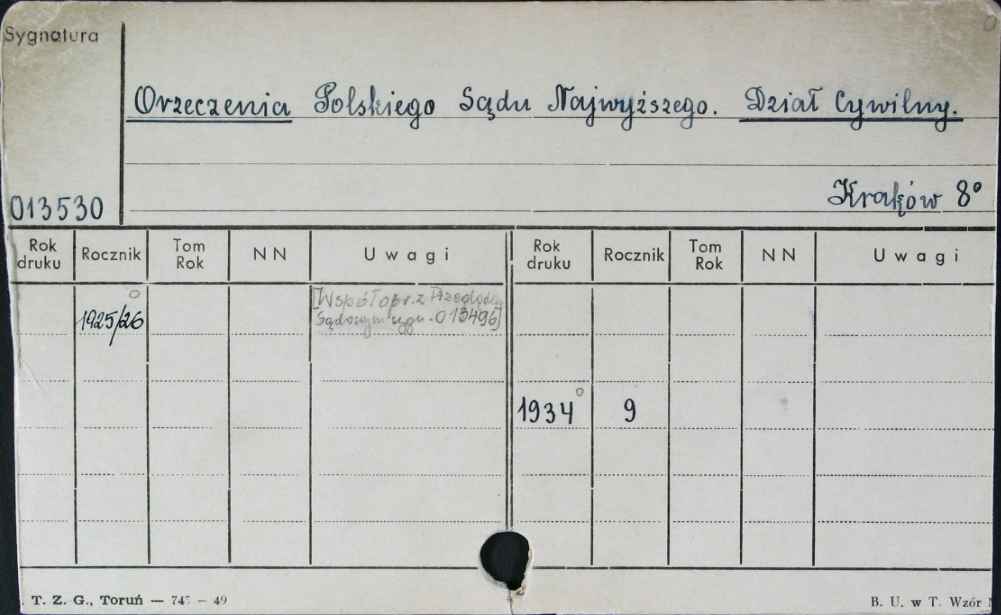 Sygnatura
Orzeczenia Polskiego Sądu Najwyższego. Dział Cywilny.
Kraków 8°
013530
Rok druku Rocznik Tom Rok N N Uwagi Rok druku Rocznik Tom Rok N N Uwagi
1925/26 [Współopr. z Przeglądem
Sądowym sygn. 013496]
1934 9
T. Z. G., Toruń — 745 — 49
B. U. w T. Wzór